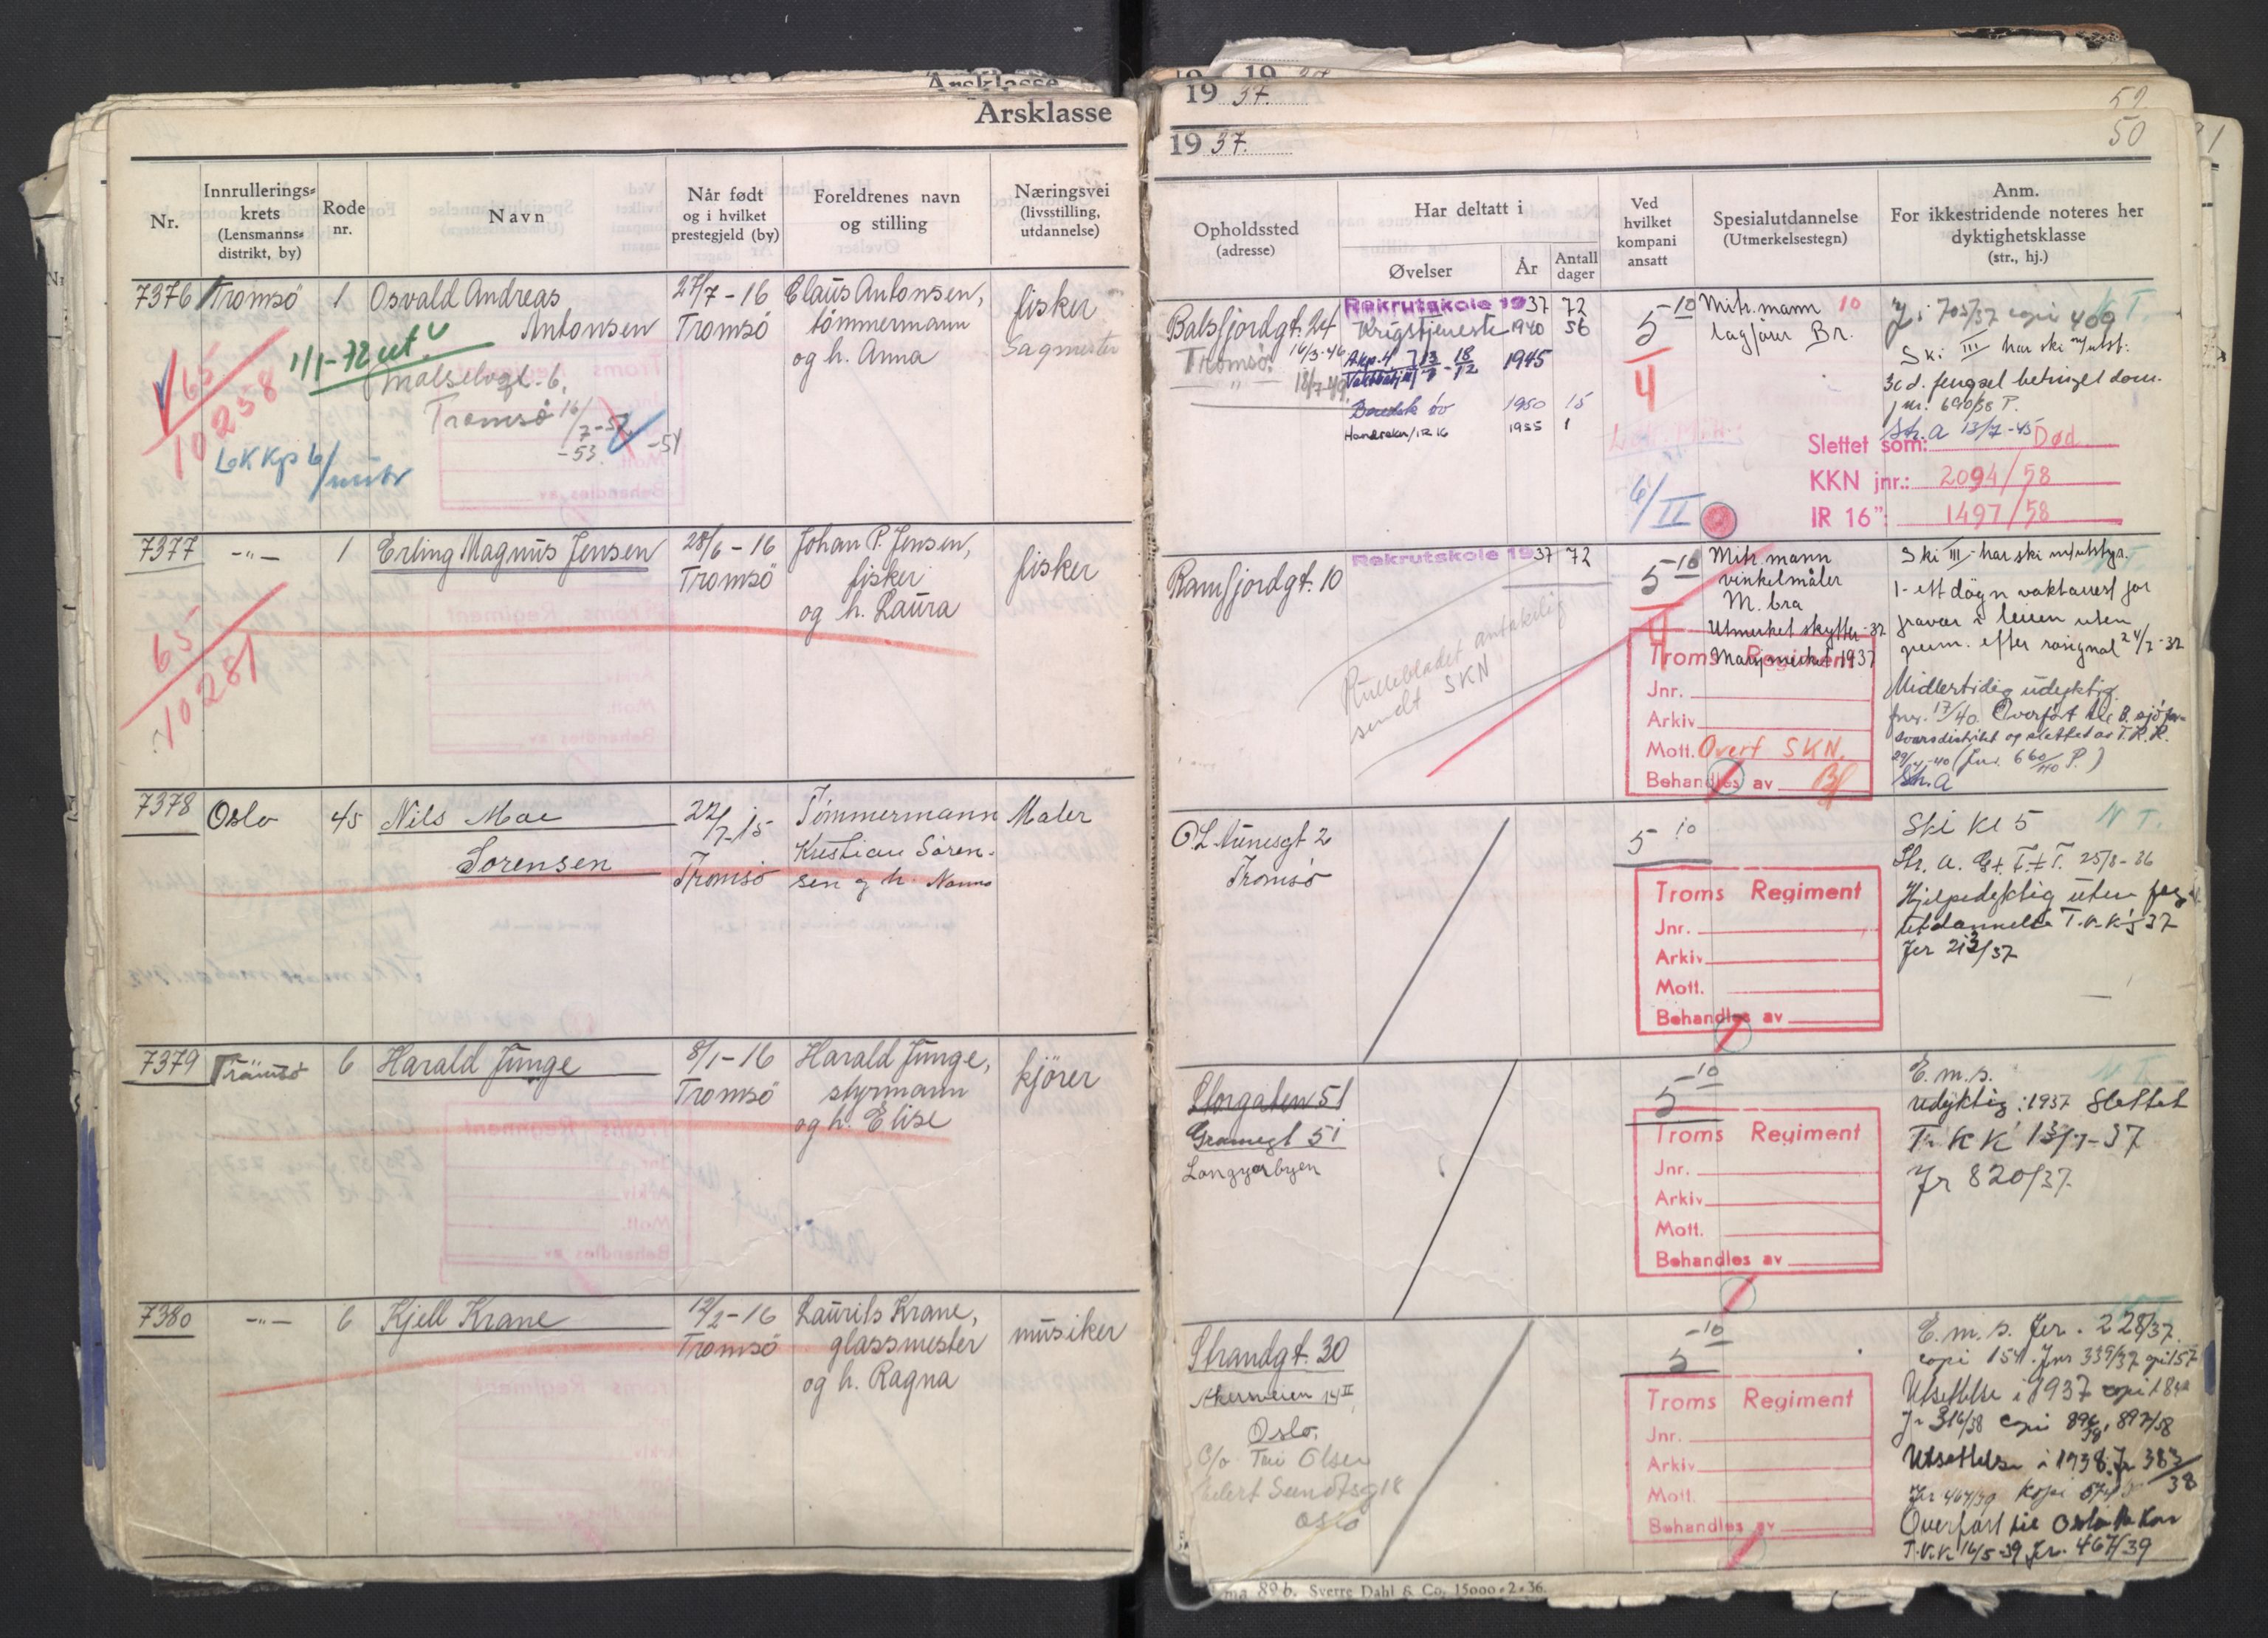 Årsklasse
Årsklasse
Nr.
Innrullerings=
krets
(Lensmanns=
distrikt, by)
Rode
nr.
Navn
Når født
og i hvilket
prestegjeld (by)
Foreldrenes navn
og stilling
Næringsvei
(livsstilling,
utdannelse)
7376 Tromsö 1 Osvald Andreas
Antonsen
27/7 - 16
Tromsö
Claus Antonsen,
tömmermann
og h. Anna
fisker
Sagmester
65
10258
1/1-72 ut.
Målselvgt. 6.
Tromsø 16/7-52
-53.
-54
LKKp 6/
7377 -"- 1 Erling Magnus Jensen
28/6 - 16
Tromsö
Johan P. Jensen,
fisker
og h. Laura
fisker
65
10281
7378 Oslo 45 Nils Moe
Sorensen
22/7-15
Tromsö
Tömmermann
Kristian Sören-
sen og h. Nanna
Maler
7379 Tromsö 6 Harald Junge
8/1 - 16
Tromsö
Harald Junge,
styrmann
og h. Elise
kjörer
7380 -"- 6 Kjell Krane
12/2 - 16
Tromsö
Laurits Krane,
glassmester
og h. Ragna
musiker
19 37.
52
19 37.
50
Opholdssted
(adresse)
Har deltatt i
Øvelser
År
Antall
dager
Ved
hvilket
kompani
ansatt
Spesialutdannelse
(Utmerkelsestegn)
Anm.
For ikkestridende noteres her
dyktighetsklasse
(str., hj.)
Balsfjordgt. 24
Tromsö. 16/3-46
-"- 18/7-49
Rekrutskole 1937 72
Krigstjeneste 1940 56
Akp. 4 13/7 - 18/12 1945
øv 1950 15
1955 1
5 -10
4
6/II
Mitr. mann 10
lagförer Br.
J. 703/37 copi 409
Ski III har ski m/utst.
30 d. fengsel betinget dom.
jnr. 690/38 P.
Str. A 13/7-45
Slettet som: Død.
KKN jnr.: 2094/58
IR 16": 1497/58
Ramfjordgt. 10
Rekrutskole 1937 72
Rullebladet antakelig
sendt SKN
5 -10
4
Mitr. mann
vinkelmåler
M. bra
Utmerket skytter - 37
Marsjmerket 1937
Troms Regiment
Jnr.
Arkiv
Mott. Overf SKN.
Behandles av
Ski III - har ski m/utstyr.
1 - ett dögn vaktarrest for
fravær i leiren uten
perm. efter rosignal 24/7-37
Midlertidig udyktig
17/40. Overfört til B. sjöfor-
svarsdistrikt og slettet av T.R.R.
29/4-40 (Jnr. 660/40 P.)
Str. A
O.L. Aunesgt 2
Tromsö
5 10
Troms Regiment
Jnr.
Arkiv
Mott.
Behandles av
Ski Kl 5
Str. A. 25/8-36
Hjelpedyktig uten
utdannelse
Jnr 213/37
Storgaten 51
Grønnegt 51
Longyerbyen
5 -10
Troms Regiment
Jnr.
Arkiv
Mott.
Behandles av
E.m.s.
Udyktig: 1937 Slettet
Tr KK 13/7-37
Jr 820/37.
Strandgt. 30
Akersveien 14 II
Oslo.
C/o Olsen
Eilert Sundtsg 18
Oslo
5 -10
Troms Regiment
Jnr.
Arkiv
Mott.
Behandles av
E.m.s. Jnr. 228/37.
copi 154. Jnr 339/37 copi 157
Utsettelse i 1937 copi 184
Jr 316/38 copi 896/38, 897/38
Utsettelse i 1938. Jr 383/38
Jnr 467/39 kopi
Overfört til Oslo
T.K.K. 16/5-39 Jr. 467/39
89 b. Sverre Dahl & Co. 15000•2•36.